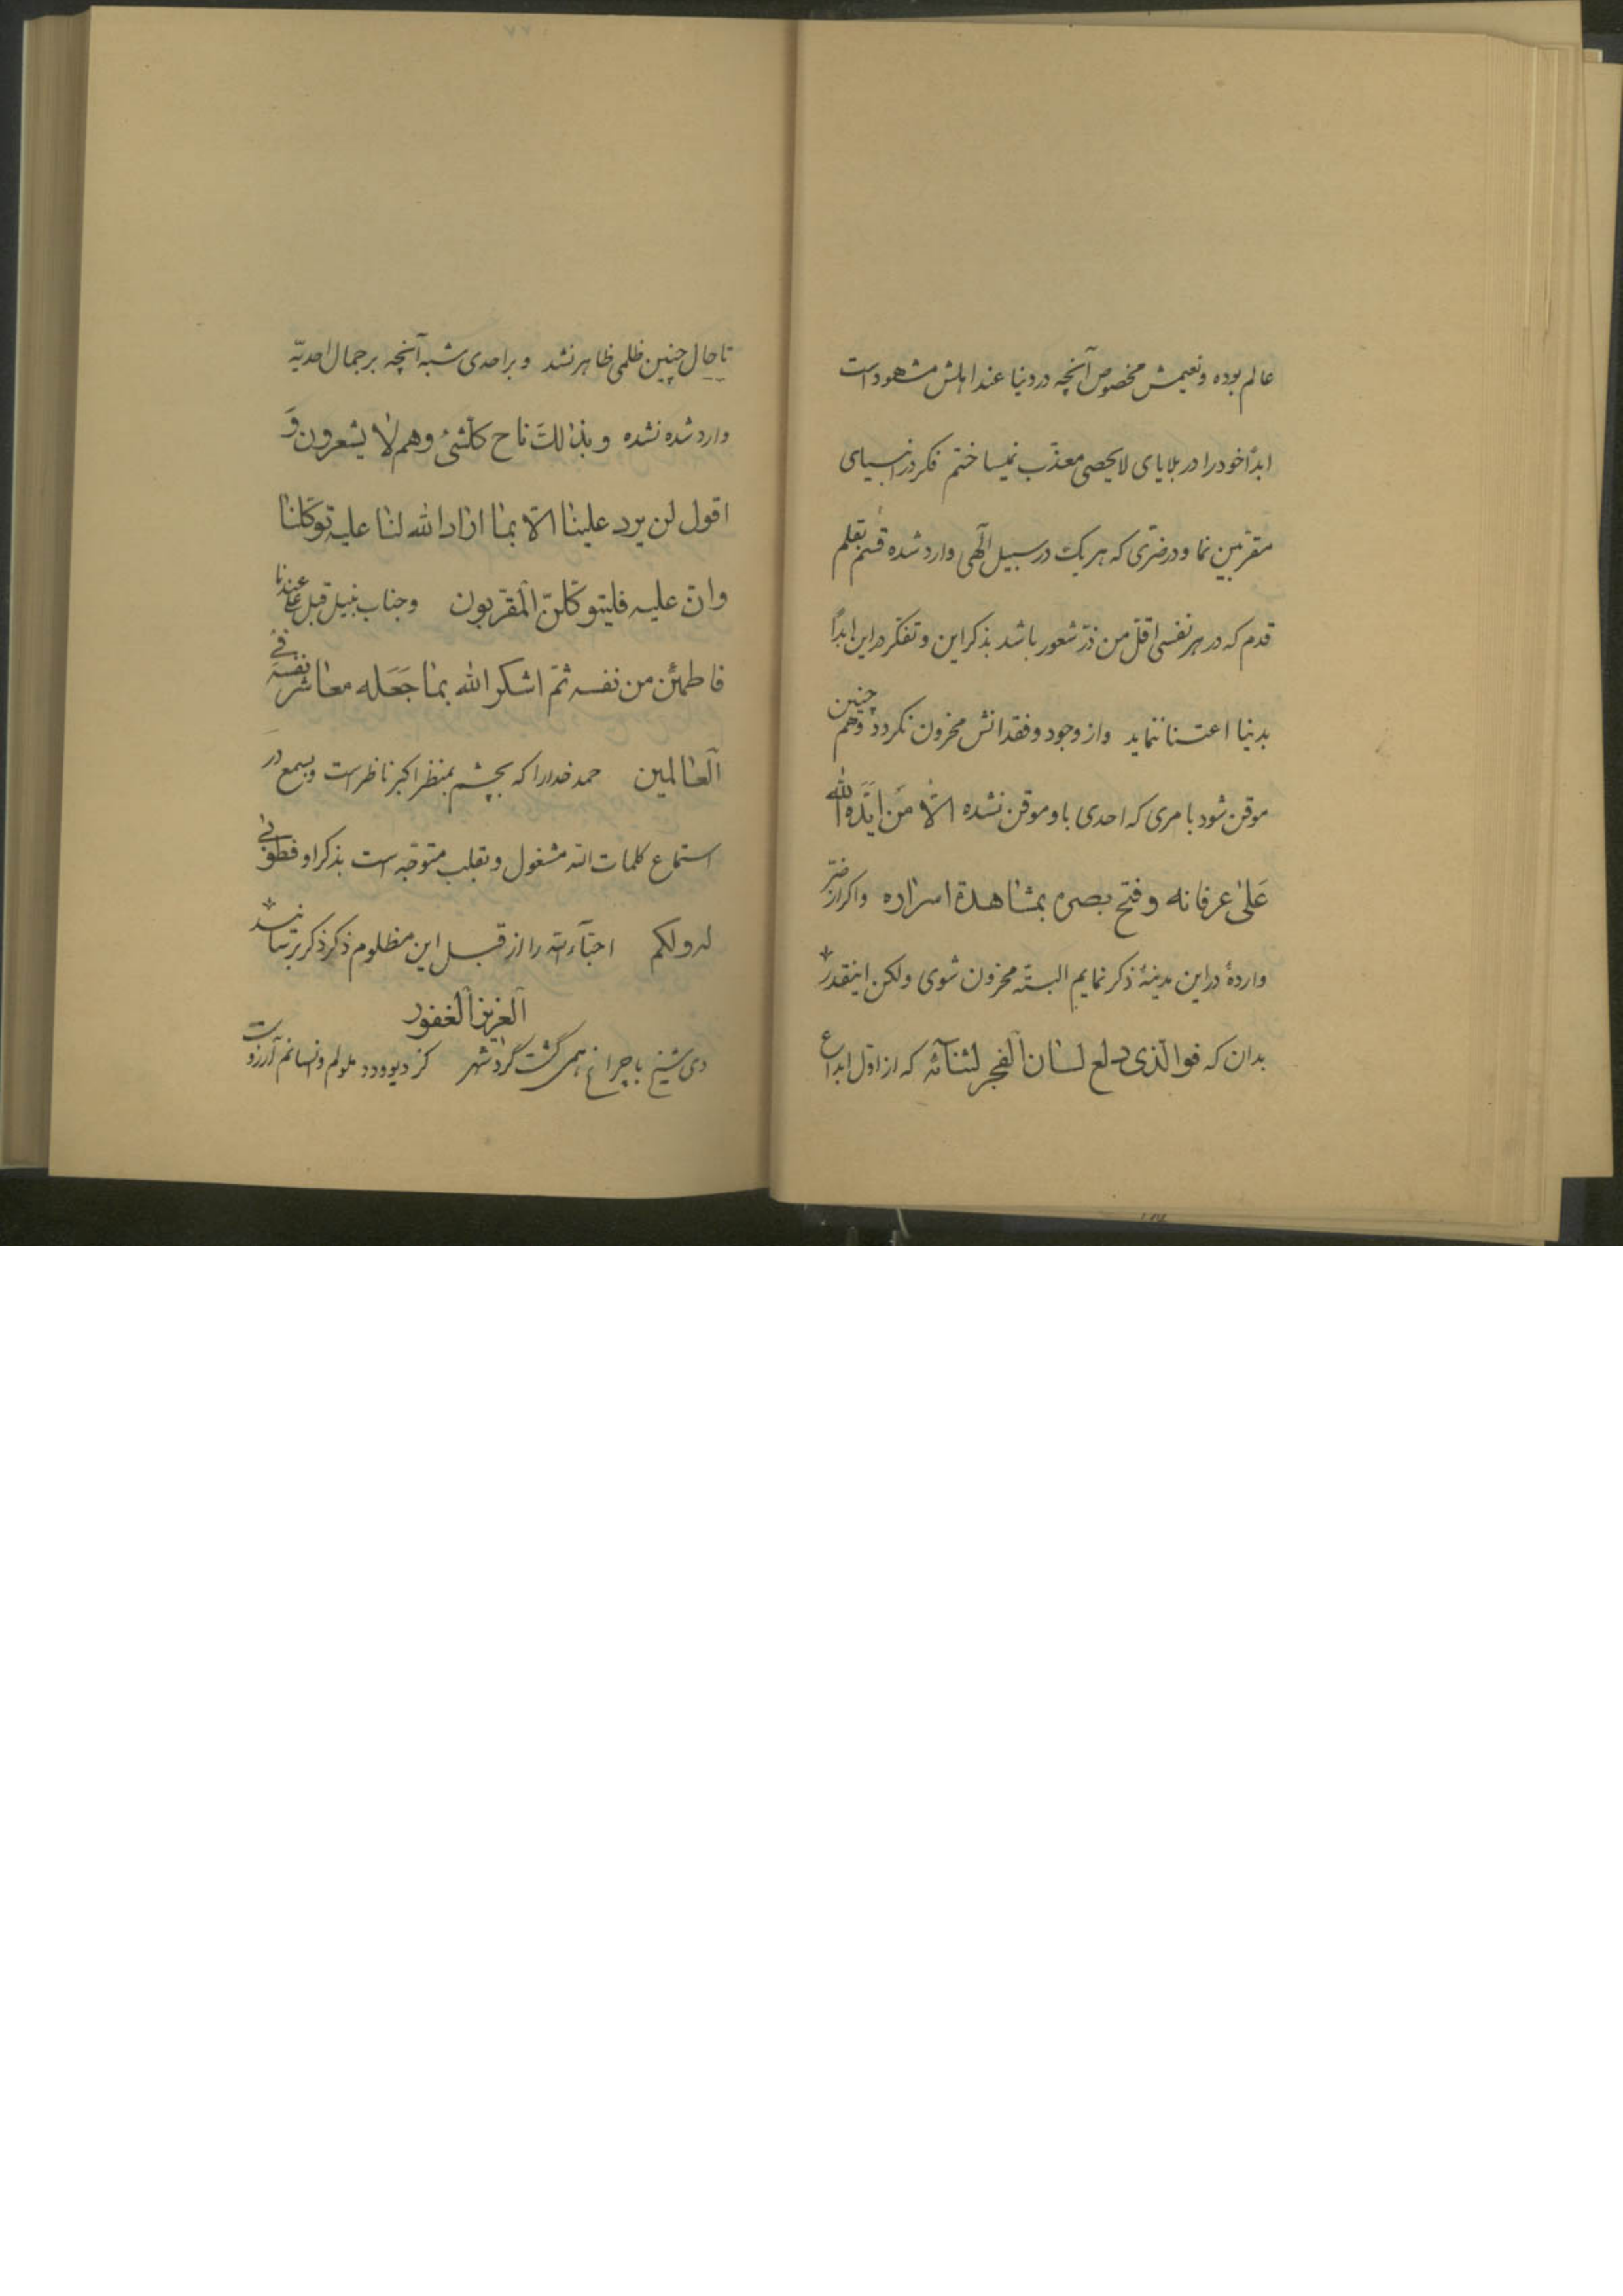 عالم بوده و نعیمش مخصوص آنچه در دنیا عند اهلش مشهود است
ابداً خود را در بلایای لایحصی معذّب نمیساختم فکر در انبیای
مقرّبین نما و در ضرّی که هر یک در سبیل الهی وارد شده قسم بقلم
قدم که در هر نفسی اقلّ من ذرّ شعور باشد بذکر این و تفکر در این ابداً
بدنیا اعتنا ننماید و از وجود و فقدانش محزون نگردد و هم چنین
موقن شود بامری که احدی باو موقن نشده الّا مَن ایّدَه الله
عَلیٰ عرفانه و فتح بصره بمشاهدة اسراره و اگر از ضرّ
وارده در این مدینه ذکر نمایم البتّه محزون شوی ولکن اینقدر
بدان که فوالّذی دلع لسان الفجر لثنائه که از اوّل ابداع
تا حال چنین ظلمی ظاهر نشد و بر احدی شبه آنچه بر جمال احدیّه
وارد شده نشده و بذالک ناح کلّشیٔ و هم لا یشعرون وَ
اقول لن یرد علینا الّا بما اراد الله لنا علیه توکّلنا
و انّ علیه فلیتوکّلنّ المقرّبون و جناب نبیل قبل علی عندنا
فاطمئن من نفسه ثمّ اشکر الله بما جَعَله معاشر نفسه فی
العالمین حمد خدا را که بچشم بمنظر اکبر ناظر است و بسمع در
استماع کلمات الله مشغول و بقلب متوجّه است بذکر او فطوبی
له و لکم احبّاء الله را از قبل این مظلوم ذکر ذکر برسانید
العزیز الغفور
دی شیخ با چراغ همی گشت گرد شهر کز دیو و دد ملولم و انسانم آرزوست